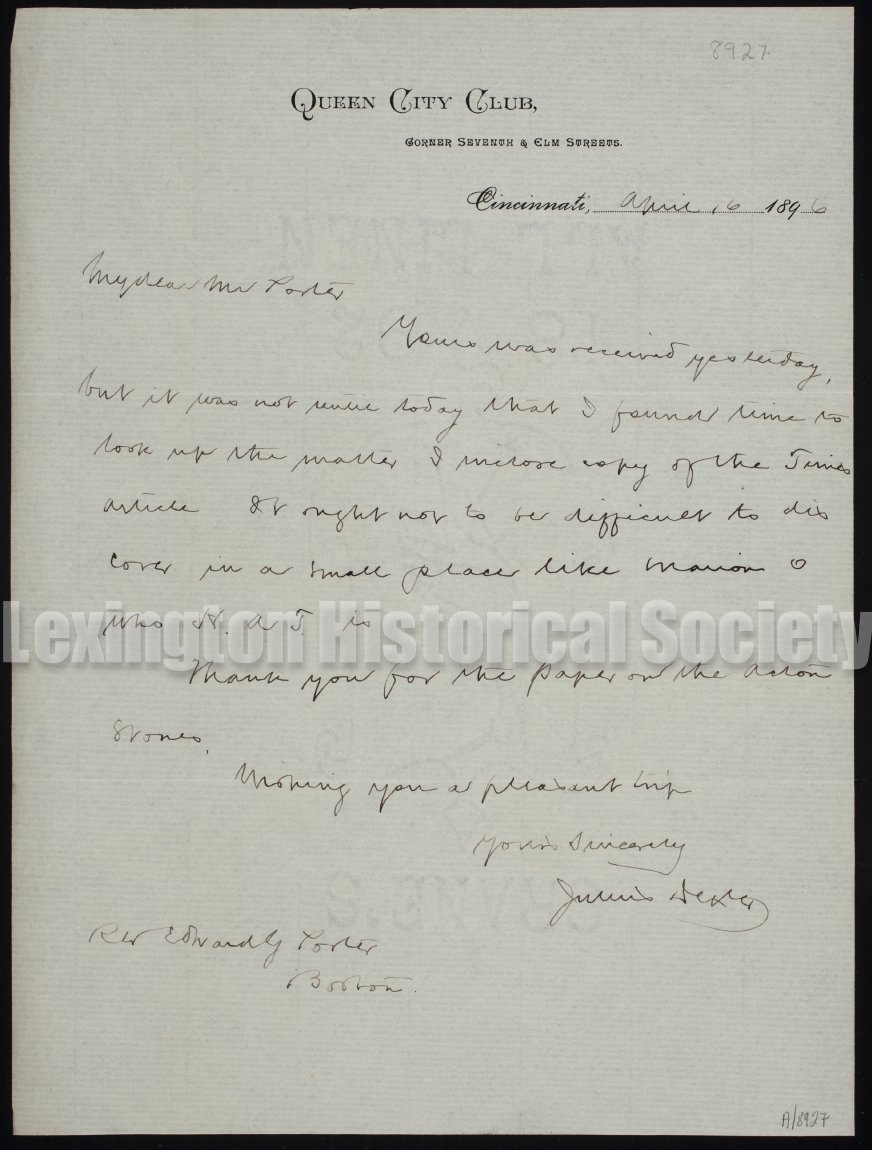 8927
QUEEN CITY CLUB,
CORNER SEVENTH & ELM STREETS.
Cincinnati, April 16 1896
My dear Mr Porter
Yours was received yesterday,
but it was not until today that I found time to
look up the matter I inclose copy of the Times
article It ought not to be difficult to dis
cover in a small place like Marion O
who H. A T. is
Lexington Historical Society
Thank you for the paper on the Acton
Stones.
Wishing you a pleasant trip
Yours Sincerely
Julius Dexter
Rev Edward G Porter
Boston.
A/8927